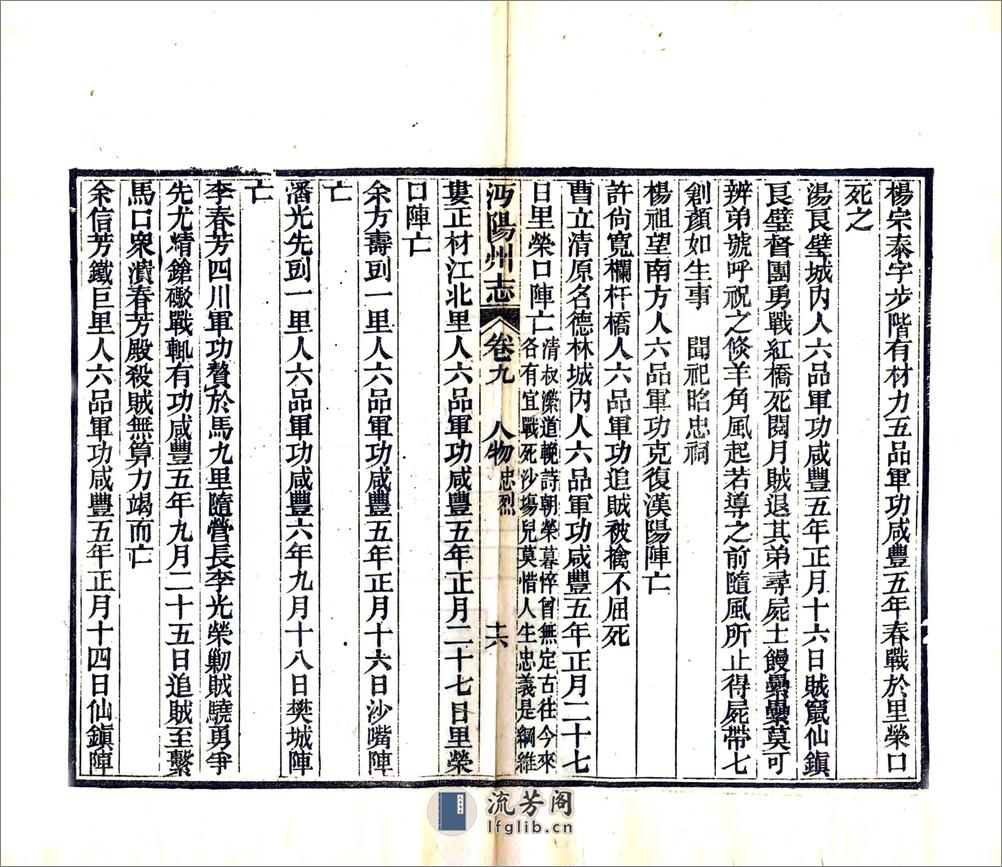 楊宗泰字步階有材力五品軍功咸豐五年春戰於里榮口
死之
湯艮璧城內人六品軍功咸豐五年正月十六日賊竄仙鎮
艮璧督團勇戰紅橋死閱月賊退其弟尋屍土饅纍纍莫可
辨弟號呼祝之倏羊角風起若導之前隨風所止得屍帶七
創顏如生事聞祀昭忠祠
楊祖望南方人六品軍功克復漢陽陣亡
許尙寬欄杆橋人六品軍功追賊被擒不屈死
曹立清原名德林城內人六品軍功咸豐五年正月二十七
日里榮口陣亡清叔灤道輓詩朝榮暮悴曾無定古往今來
各有宜戰死沙場兒莫惜人生忠義是綱維
沔陽州志 卷九 人物 忠烈 十六
婁正材江北里人六品軍功咸豐五年正月二十七日里榮
口陣亡
余方壽剅一里人六品軍功咸豐五年正月十六日沙嘴陣
亡
潘光先剅一里人六品軍功咸豐六年九月十八日樊城陣
亡
李春芳四川軍功贅於馬九里隨營長李光榮勦賊驍勇爭
先尤精鎗礮戰輒有功咸豐五年九月二十五日追賊至繫
馬口衆潰春芳殿殺賊無算力竭而亡
余信芳鐵巨里人六品軍功咸豐五年正月十四日仙鎮陣
流芳阁
lfglib.cn